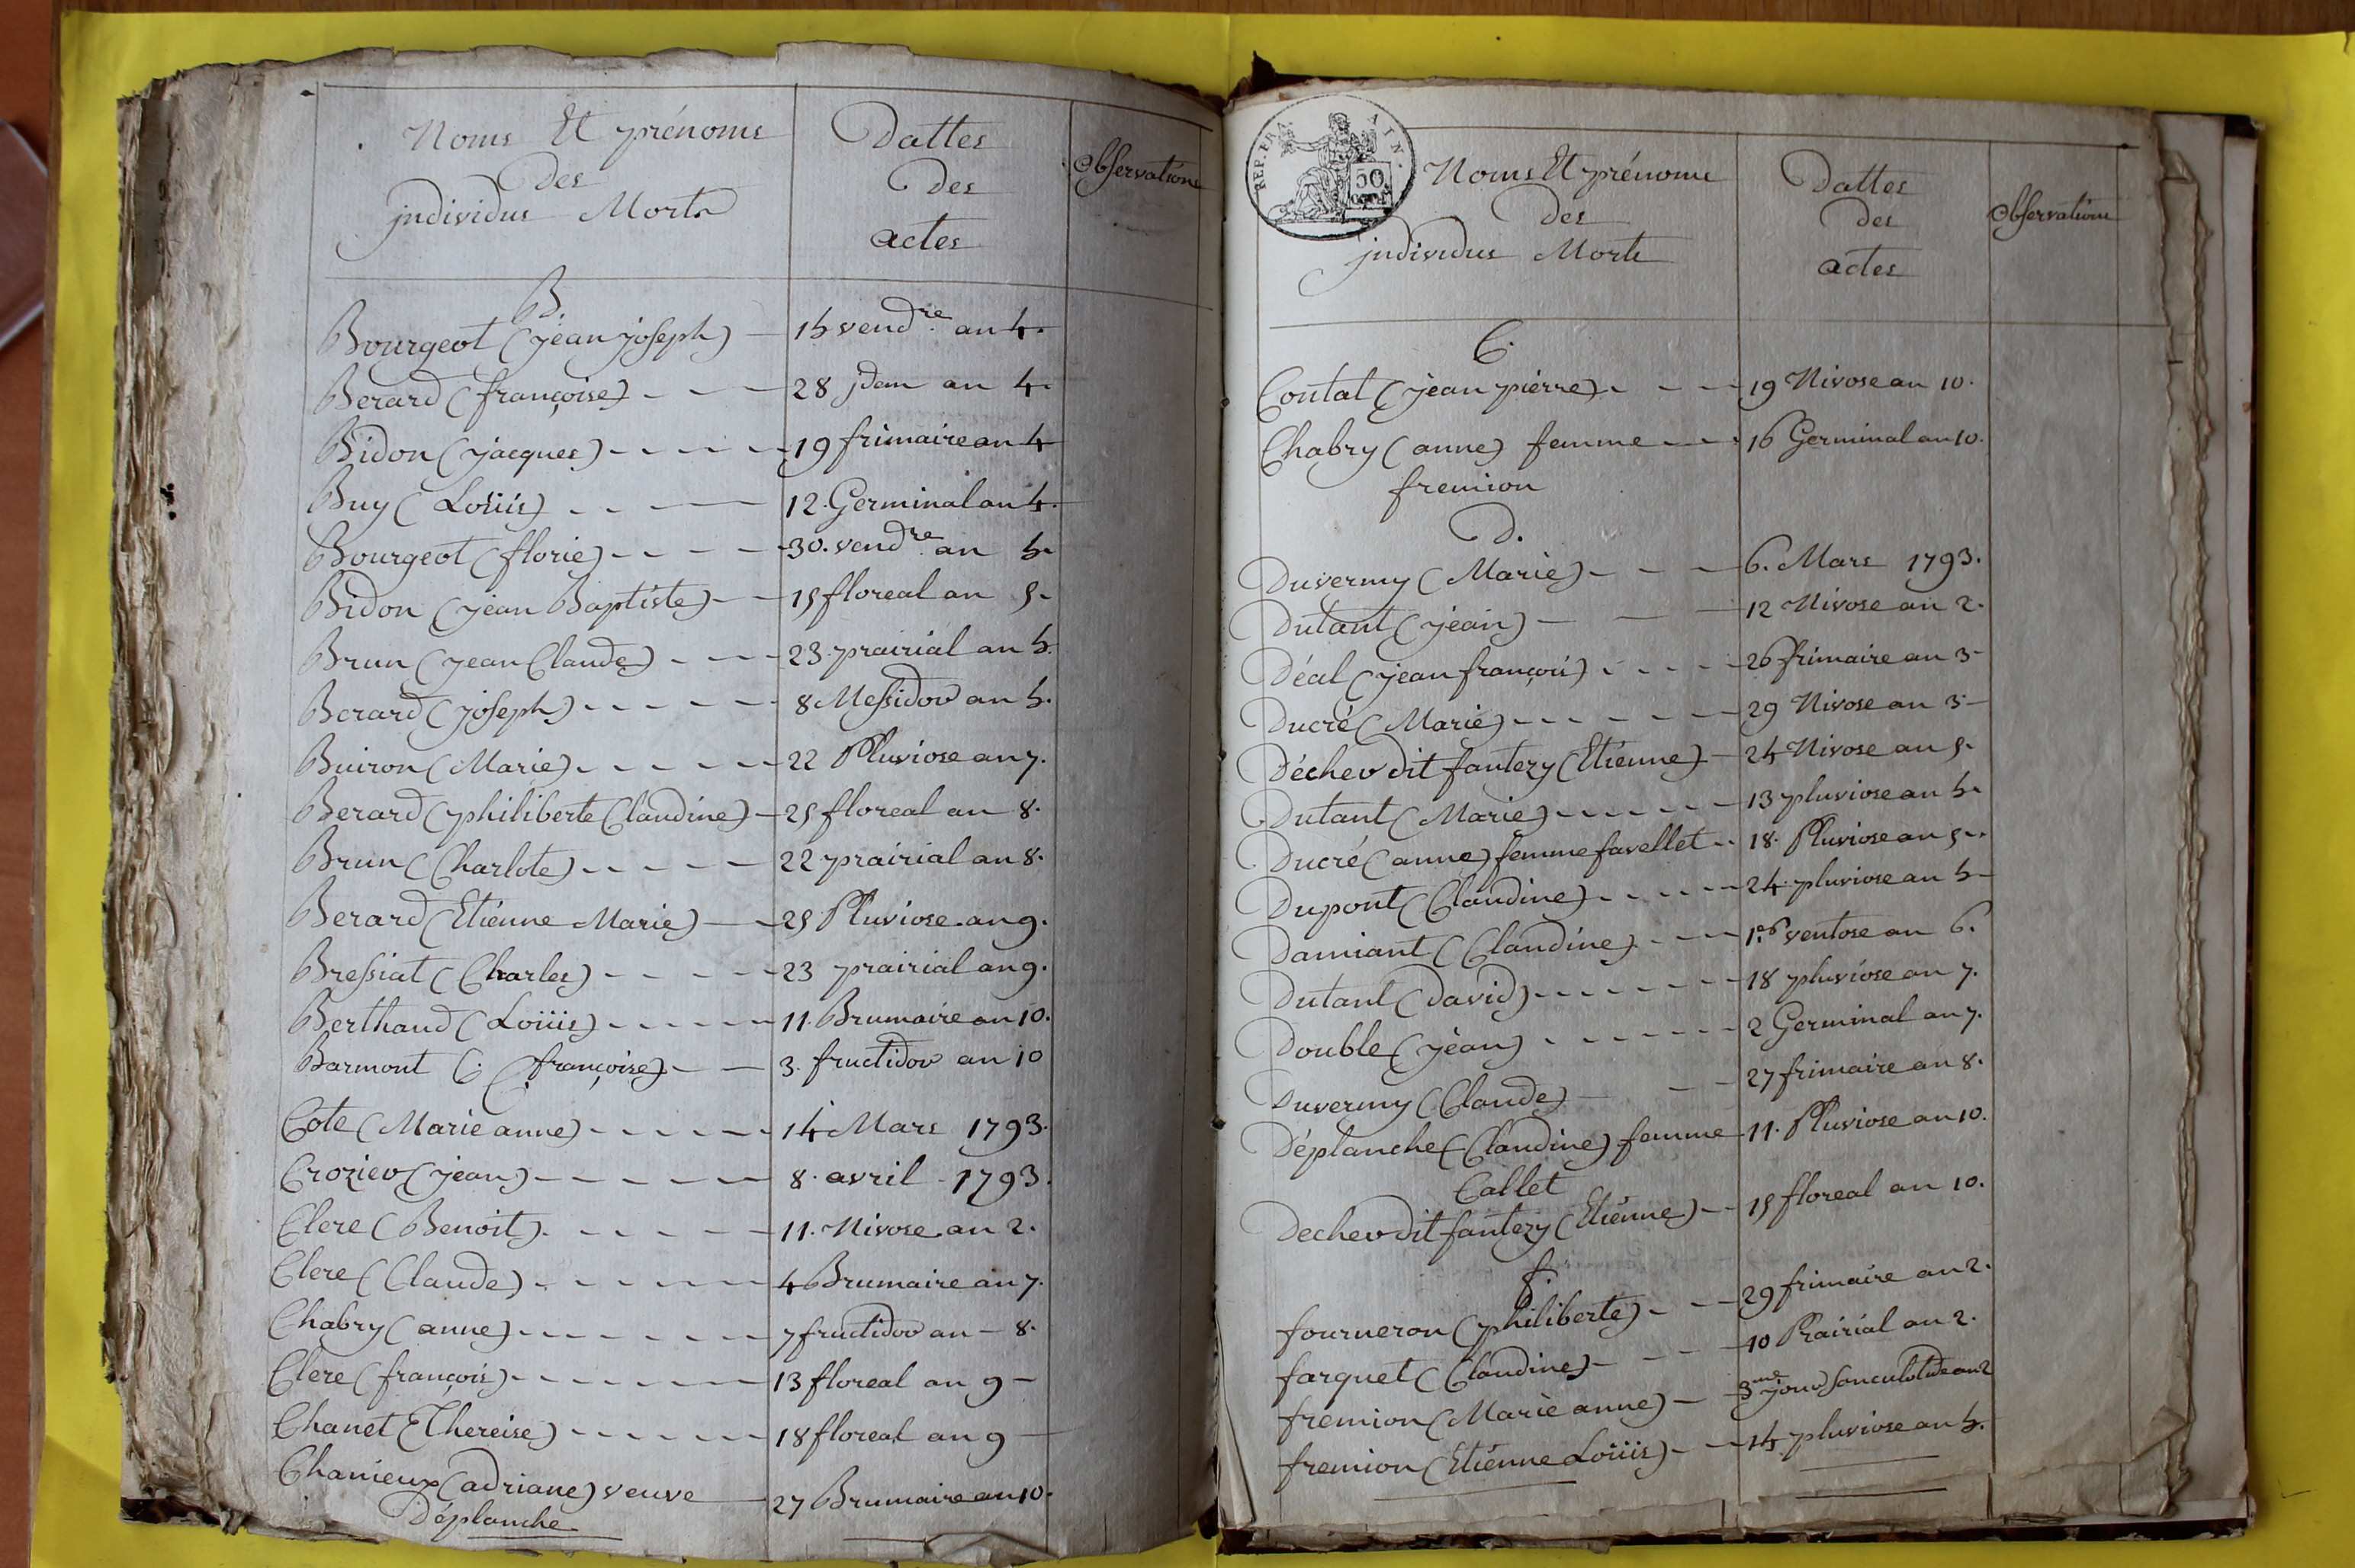 Noms Et prénoms
Des
jndividus Morts
Dattes
Des
actes
observations
B.
Bourgeot (jean joseph) 15 vend.re an 4.
Berard (françoise) 28 jdem an 4.
Bidon (jacques) 19 frimaire an 4
Buy (Loüis) 12. Germinal an 4.
Bourgeot (florie) 30. vend.re an 5.
Bidon (jean Baptiste) 15 floreal an 5.
Brun (jean Claude) 23. prairial an 5.
Berard (joseph) 8 Messidor an 5.
Buiron (Marie) 22 Pluviose an 7.
Berard (philiberte Claudine) 25 floreal an 8.
Brun (Charlote) 22 prairial an 8.
Berard (Etiénne Marie) 25 Pluviose an 9.
Bressiat (Charles) 23 prairial an 9.
Berthaud (Loüis) 11. Brumaire an 10.
Barmont (françoise) 3. fructidor an 10
C.
Cote (Marie anne) 14 Mars 1793.
Crozier (jean) 8. avril 1793.
Clere (Benoit) 11. Nivose an 2.
Clere (Claude) 4 Brumaire an 7.
Chabry (anne) 7 fructidor an 8.
Clere (françois) 13 floreal an 9
Chanet (Thereise) 18 floreal an 9
Chanieux (adriane) veuve 27 Brumaire an 10.
Déplanche
REP. FRA.
50
Noms Et prénoms
Des
jndividus Morts
Dattes
des
actes
observations
C.
Contat (jean pierre) 19 Nivose an 10.
Chabry (anne) femme 16 Germinal an 10.
fremion
D.
Duvermy (Marie) 6. Mars 1793.
Dutant (jean) 12 Nivose an 2.
Déal (jean françois) 26 frimaire an 3
Ducré (Marie) 29 Nivose an 3
Décher dit fantezy (Etiénne) 24 Nivose an 5.
Dutant (Marie) 13 pluviose an 5.
Ducré (anne) femme favellet 18. Pluviose an 5.
Dupont (Claudine) 24. pluviose an 5
Damiant (Claudine) ventose an 6.
Dutant (david) 18 pluviose an 7.
Double (jean) 2 Germinal an 7.
Duvermy (Claude) 27 frimaire an 8.
Déplanche (Claudine) femme 11. Pluviose an 10.
Callet
Decher dit fantezy (Etiénne) 15 floreal an 10.
f.
fourneron (philiberte) 29 frimaire an 2.
farquet (Claudine) 10 Prairial an 2.
fremion (Marie anne) 3.me jour Sanculotide an 2
fremion (Etiénne Loüis) 14 pluviose an 5.